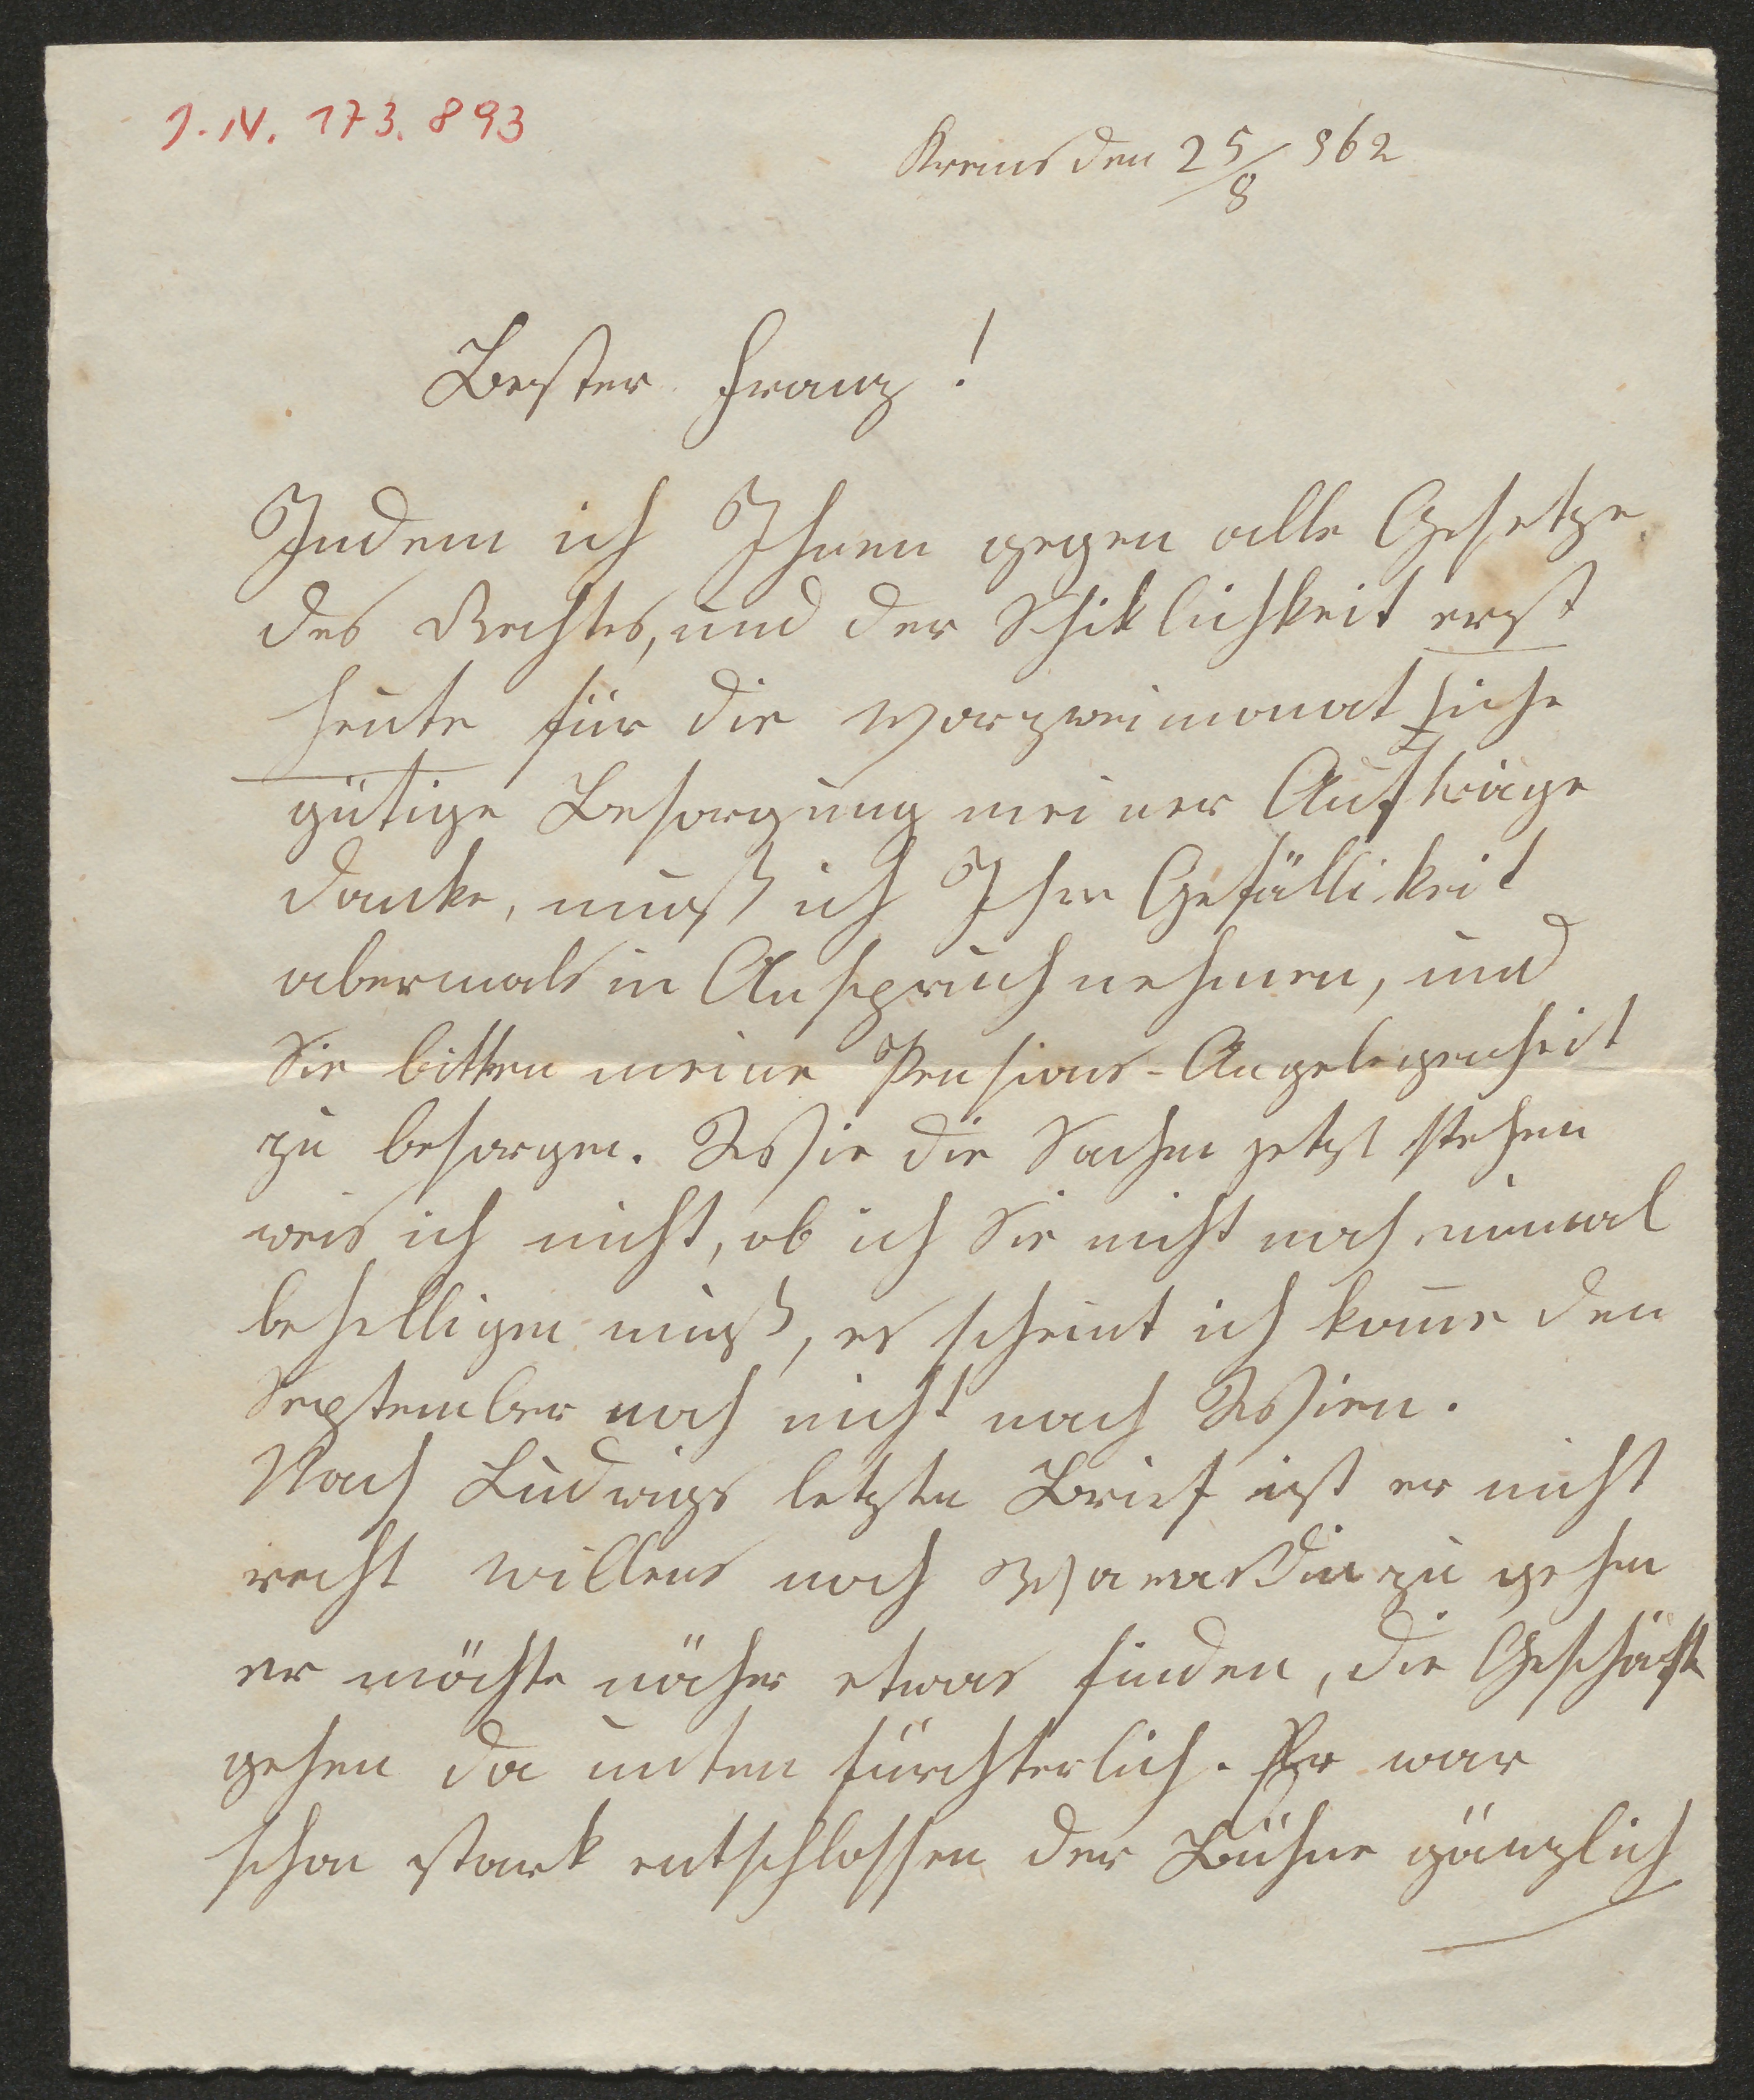 J. N. 173.893
Krems den 25/8 862
Bester Franz!
Indem ich Ihnen gegen alle Gesetze
des Rechtes, und der Schiklichkeit erst
heute für die vorzweimonatliche
gütige Besorgung meiner Aufträge
danke, muß ich Ihre Gefällikeit
abermals in Anspruch nehmen, und
Sie bitten meine Pensions-Angelegenheit
zu besorgen. Wie die Sachen jetzt stehen
weis ich nicht, ob ich Sie nicht noch einmal
behelligen muß, es scheint ich kom̄e den
September noch nicht nach Wien.
Nach Ludwigs letzten Brief ist er nicht
recht willens nach Warasdin zu gehen
er möchte näher etwas finden, die Geschäfte
gehen da unten fürchterlich. Er war
schon stark entschlossen der Bühne gänzlich